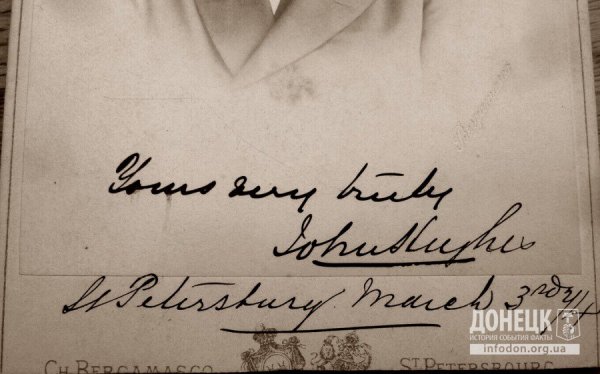 Yours very truly
John Hughes
St Petersburg. March 3rd
ДОНЕЦК
ИСТОРИЯ СОБЫТИЯ ФАКТЫ
infodon.org.ua
CH. BERGAMASCO
ST PETERSBOURG